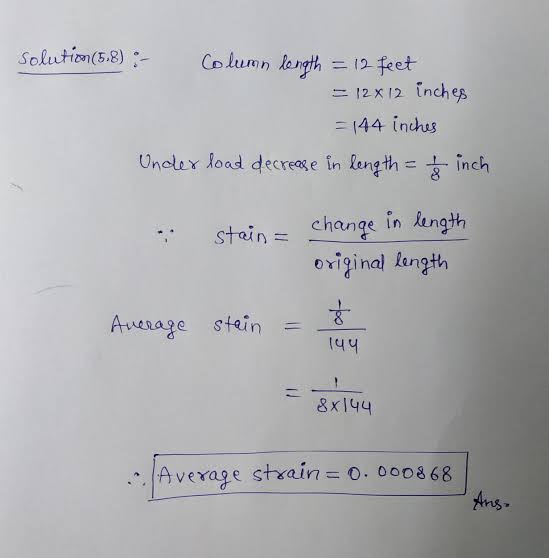 Solution(5.8) :- Column length = 12 feet
= 12 x 12 inches
= 144 inches
Under load decrease in length = 1/8 inch
∵ stain = change in length / original length
Average stain = 1/8 / 144
= 1 / 8x144
∴ Average strain = 0.000868
Ans.